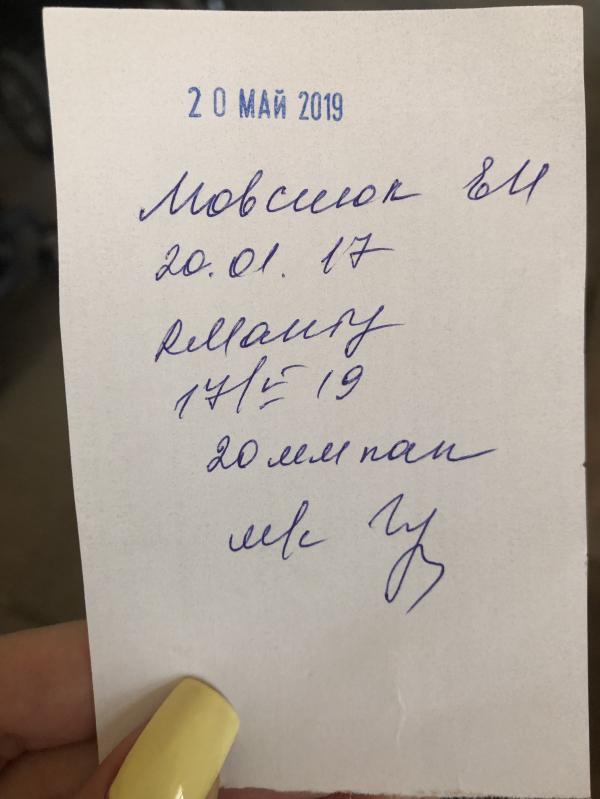 20 МАЙ 2019
Мовсиюк ЕИ
20.01.17
RМанту
17/V 19
20 мм пап
м/с